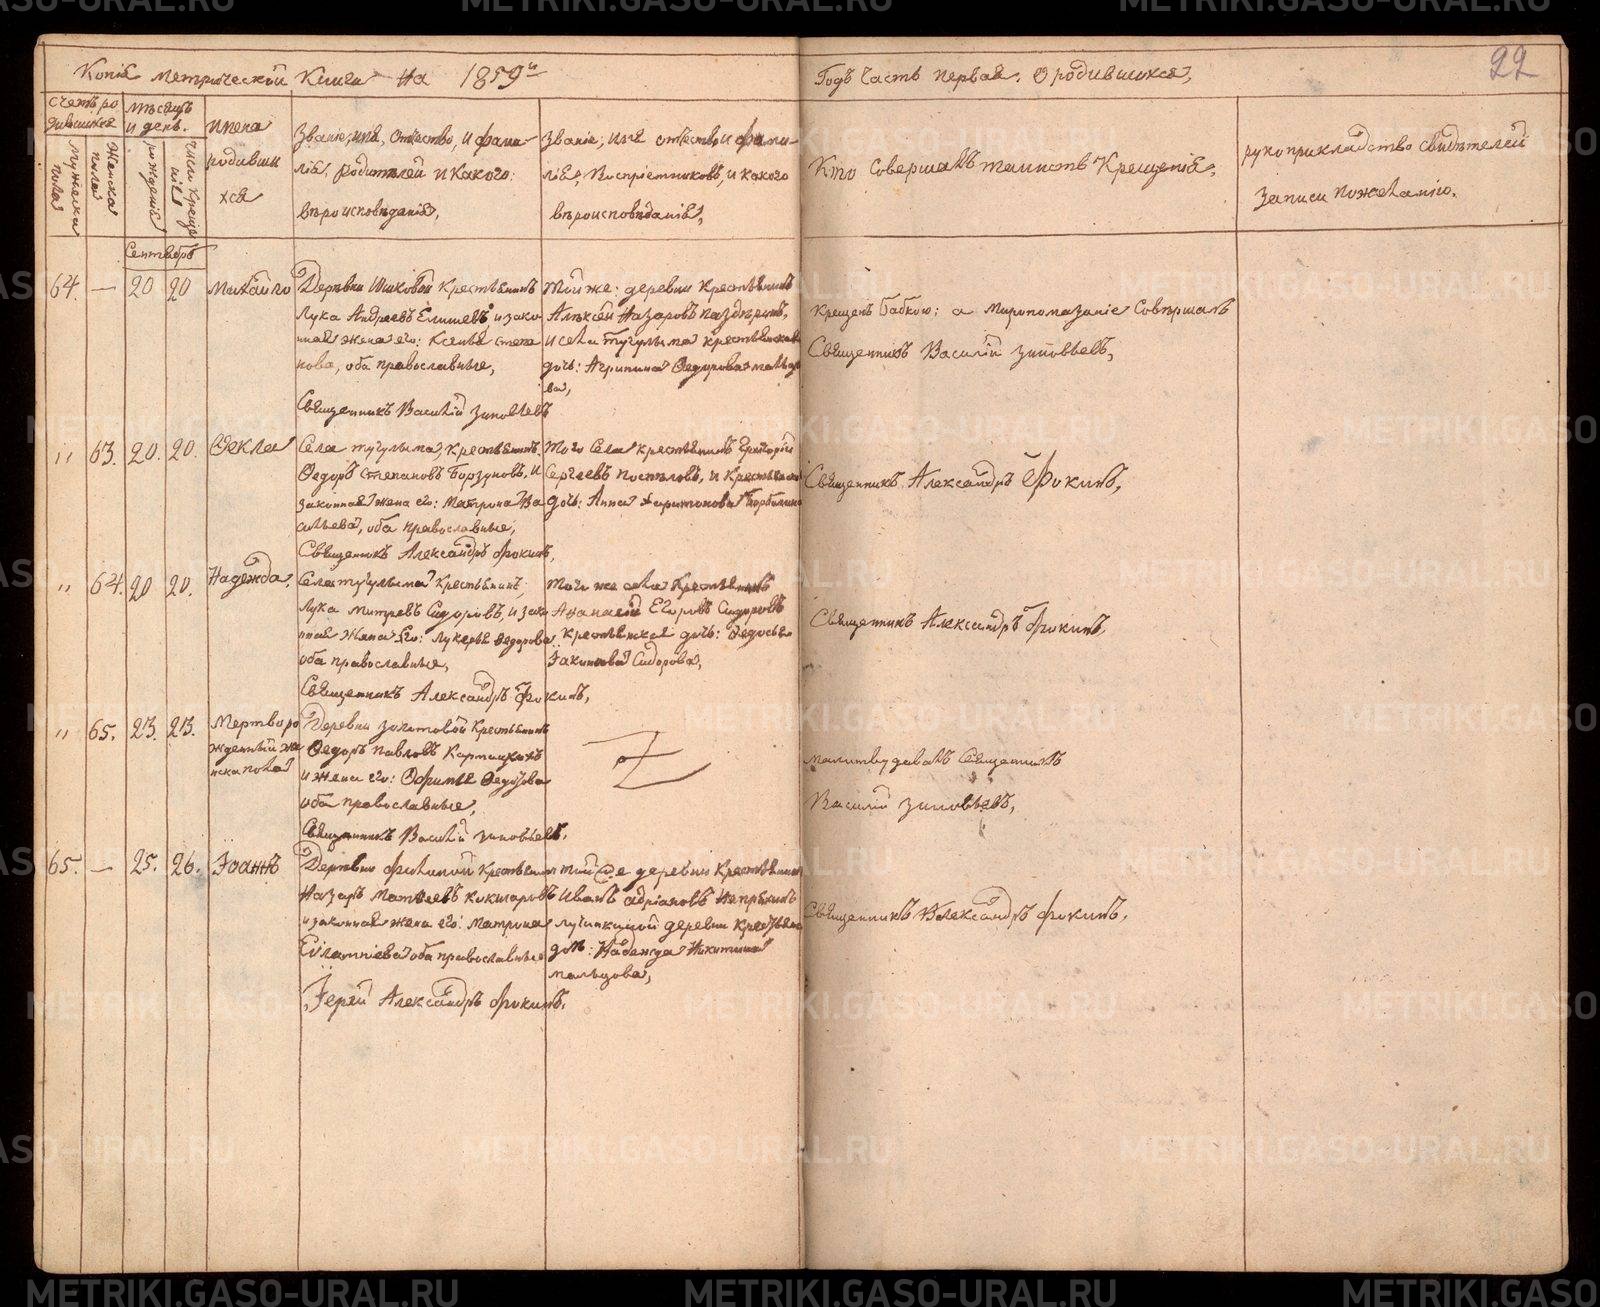 Копія метрической Книги на 1859й
Годъ Часть первая. О родившихся,
22
Счетъ ро
дившихся
Мужеска
пола
Женска
пола
Мѣсяцъ
и день.
рожденія
число крещенія
имена
родивши
хся
Званіе, имя, отчество, и фами
лія, родителей и какого
вѣроисповѣданія,
Званіе, имя отчество и фами-
лія, воспріемниковъ, и какого
вѣроисповѣданія,
Кто совершалъ таинств Крещенія,
рукоприкладство свидѣтелей
записи по желанію.
Сентябрь
64. — 20 20 Михаило
Деревни Крестьянинъ
Лука Андреевъ и зако
нная жена его: Ксенія степа
нова, оба православные,
Священникъ Василій Зиновьевъ
Той же: деревни Крестьянинъ
Алексей Назаровъ
и села тугулыма крестьянская
дочь: Агрипина Ѳедорова мальцо
ва,
Крещенъ бабкою: а миропомазаніе Совершалъ
Священникъ Василій Зиновьевъ,
" 63. 20. 20. Ѳекла
Села тугулыма, крестьянинъ
Ѳедоръ Степановъ Борзуновъ, и
законная жена его: Матрона Ва
сильева, оба православные,
Священникъ Александръ Фокинъ,
Того Села крестьянинъ Григорій
Сергѣевъ и Крестьянска
дочь: Анна Харитонова
Священникъ Александръ Фокинъ,
" 64. 20 20. Надежда.
Села тугулыма Крестьянинъ
Лука митревъ Сидоровъ, и зако
нная Жена Его: Лукерья Ѳедорова
оба православные,
Священникъ Александръ Фокинъ,
Того же села Крестьянинъ
Афанасей Егоровъ Сидоровъ
крестьянская дочь: Ѳедосья
Іакимова Сидорова,
Священникъ Александръ Фокинъ,
" 65. 23. 23. Мертворо
жденный же
нска пола
Деревни золотовой Крестьянинъ
Ѳедоръ Павловъ
и жена его: Ѳедорова
оба православные,
Священникъ Василій Зиновьевъ,
Священникъ
Василій Зиновьевъ,
65. — 25. 26. Іоаннъ
Деревни Филиной Крестьянинъ
Назаръ Матвеевъ Кокшаровъ
и законная жена его: Матрона
Евлампіева оба православные
Іерей Александръ Фокинъ.
той же деревни Крестьянинъ
Иванъ Адріановъ
деревни Крестьянска
дочь: Надежда Никитина
мальцова,
Священникъ Александръ Фокинъ.
METRIKI.GASO-URAL.RU